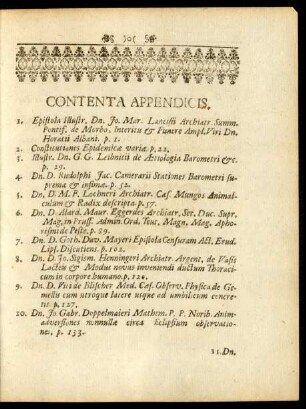 CONTENTA APPENDICIS.
1. Epistola Illustr. Dn. Jo. Mar. Lancisii Archiatr. Summ.
Pontif. de Morbo, Interitu & Funere Ampl. Viri Dn.
Horatii Albani. p. 1.
2. Constitutiones Epidemicæ variæ. p. 22.
3. Illustr. Dn. G. G. Leibnitii de Aetiologia Barometri &c.
p. 29.
4. Dn. D. Rudolphi Jac. Camerarii Stationes Barometri su-
prema & infima. p. 52.
5. Dn. D. M. F. Lochneri Archiatr. Cæs. Mungos Animal-
culum & Radix descripta. p. 57.
6. Dn. D. Alard. Maur. Eggerdes Archiatr. Ser. Duc. Supr.
Mag. in Pruss. Admin. Ord. Teut. Magn. Mag. Apho-
rismi de Peste. p. 89.
7. Dn. D. Goth. Dav. Mayeri Epistola Censuram Act. Erud.
Lips. Discutiens. p. 102.
8. Dn. D. Jo. Sigism. Henningeri Archiatr. Argent. de Vasis
Lacteis & Modus novus inveniendi ductum Thoraci-
cum in corpore humano. p. 120.
9. Dn. D. Pus de Blischer Med. Cæs. Observ. Physica de Ge-
mellis cum utroque latere usque ad umbilicum concre-
tis. p. 127.
10. Dn. Jo. Gabr. Doppelmaieri Mathem. P. P. Norib. Anim-
adversiones nonnullæ circa Eclipsium observatio-
nes. p. 133.
11. Dn.